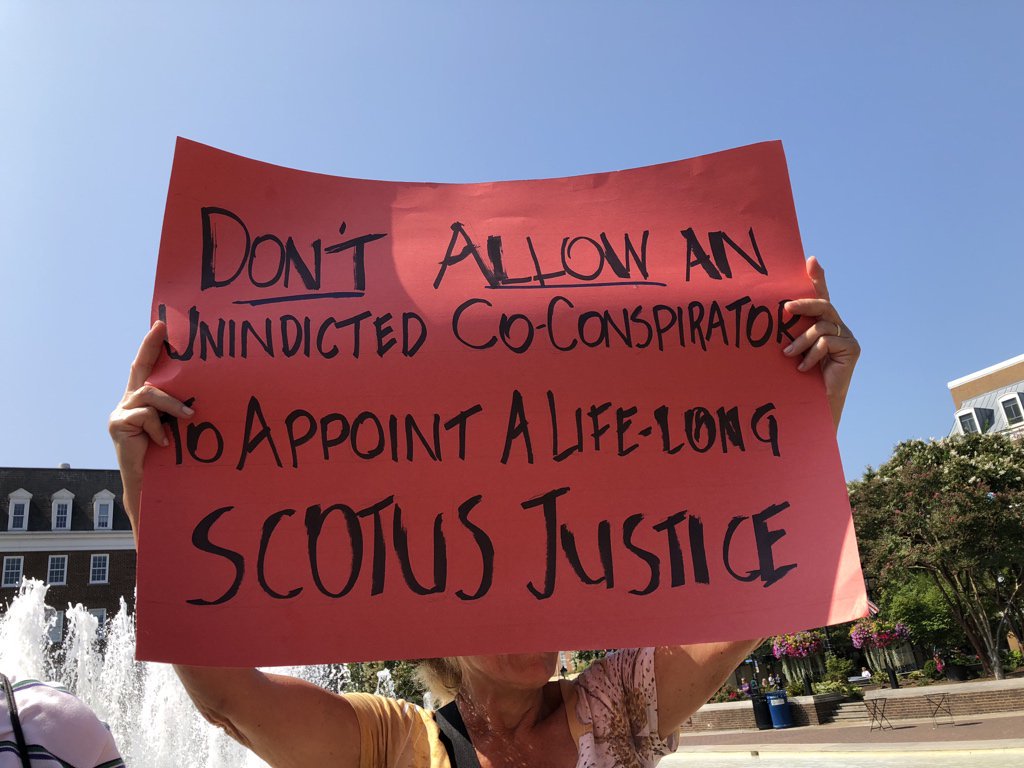 DON'T ALLOW AN
UNINDICTED CO-CONSPIRATOR
TO APPOINT A LIFE-LONG
SCOTUS JUSTICE